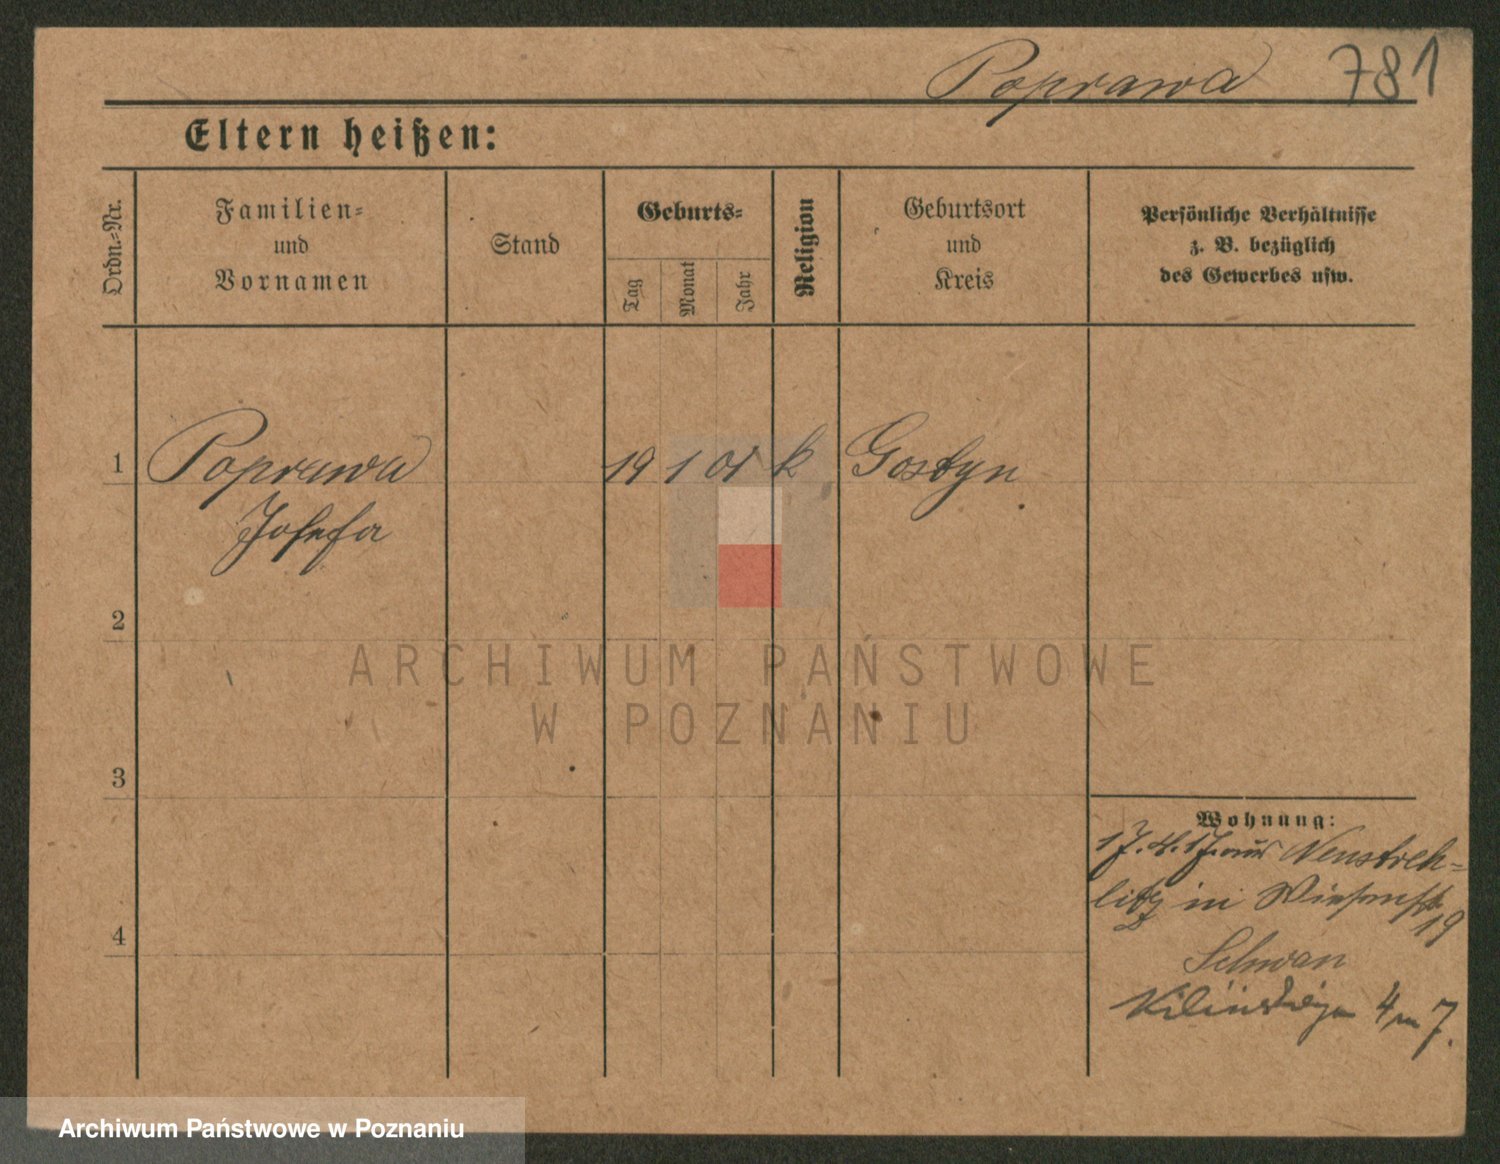 Poprawa 781
Eltern heißen:
Ordn.-Nr.
Familien-
und
Vornamen
Stand
Geburts-
Tag
Monat
Jahr
Religion
Geburtsort
und
Kreis
Persönliche Verhältnisse
z. B. bezüglich
des Gewerbes usw.
1 Poprawa 19 1 01 k Gostyn
Josefa
2
3
4
Wohnung:
17.4.17. aus Neustreh-
litz in 19
Schwan
4 m 7.
ARCHIWUM PAŃSTWOWE
W POZNANIU
Archiwum Państwowe w Poznaniu